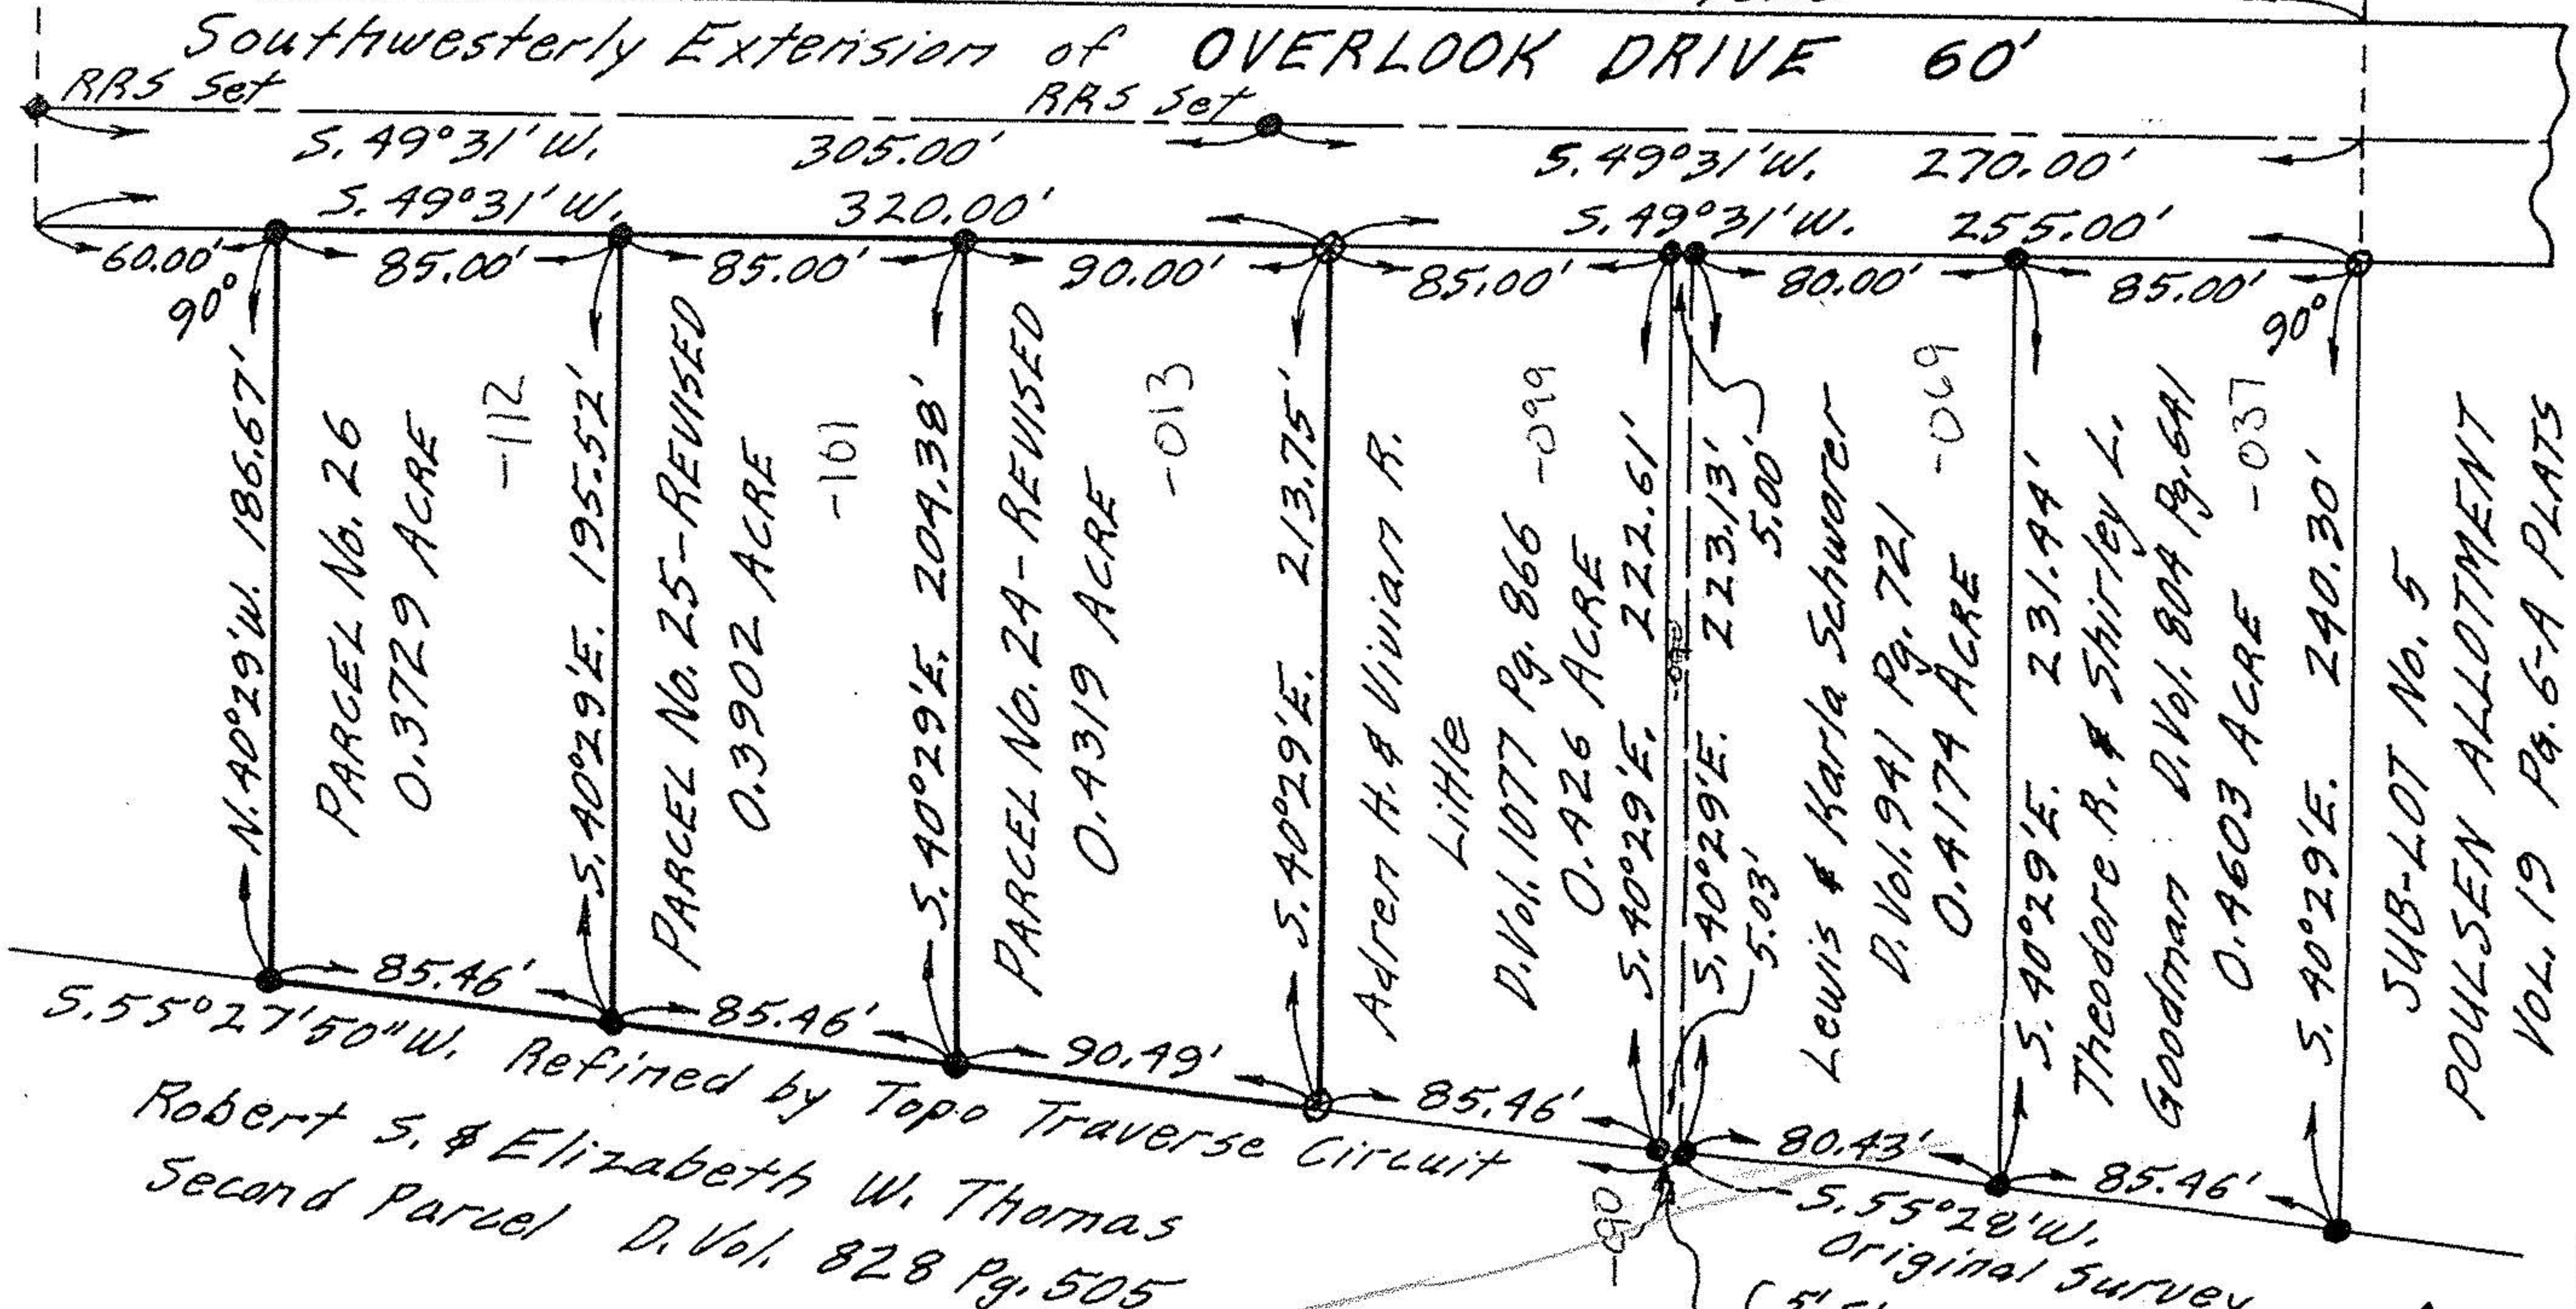 Southwesterly Extension of OVERLOOK DRIVE 60'
RRS Set
RRS Set
S.49°31'W. 305.00'
S.49°31'W. 270.00'
S.49°31'W. 320.00'
S.49°31'W. 255.00'
60.00'
85.00'
85.00'
90.00'
85.00'
80.00'
85.00'
90°
90°
N.40°29'W. 186.67'
PARCEL No. 26
0.3729 ACRE
-112
S.40°29'E. 195.52'
PARCEL No. 25-REVISED
0.3902 ACRE
-101
S.40°29'E. 204.38'
PARCEL No. 24-REVISED
0.4319 ACRE
-013
S.40°29'E. 213.75'
Adren H. & Vivian R.
Little
D.Vol. 1077 Pg. 866 -099
0.426 ACRE
S.40°29'E. 222.61'
S.40°29'E. 223.13'
5.03'
5.00'
Lewis & Karla Schworer
D.Vol. 941 Pg. 721
0.4174 ACRE -069
S.40°29'E. 231.44'
Theodore R. & Shirley L.
Goodman D.Vol. 804 Pg. 641
0.4603 ACRE -037
S.40°29'E. 240.30'
SUB-LOT No. 5
POULSEN ALLOTMENT
VOL. 19 PG. 6-A PLATS
85.46'
85.46'
90.49'
85.46'
80.43'
85.46'
S.55°27'50"W. Refined by Topo Traverse Circuit
Robert S. & Elizabeth W. Thomas
Second Parcel D.Vol. 828 Pg. 505
-090
S.55°28'W.
Original Survey